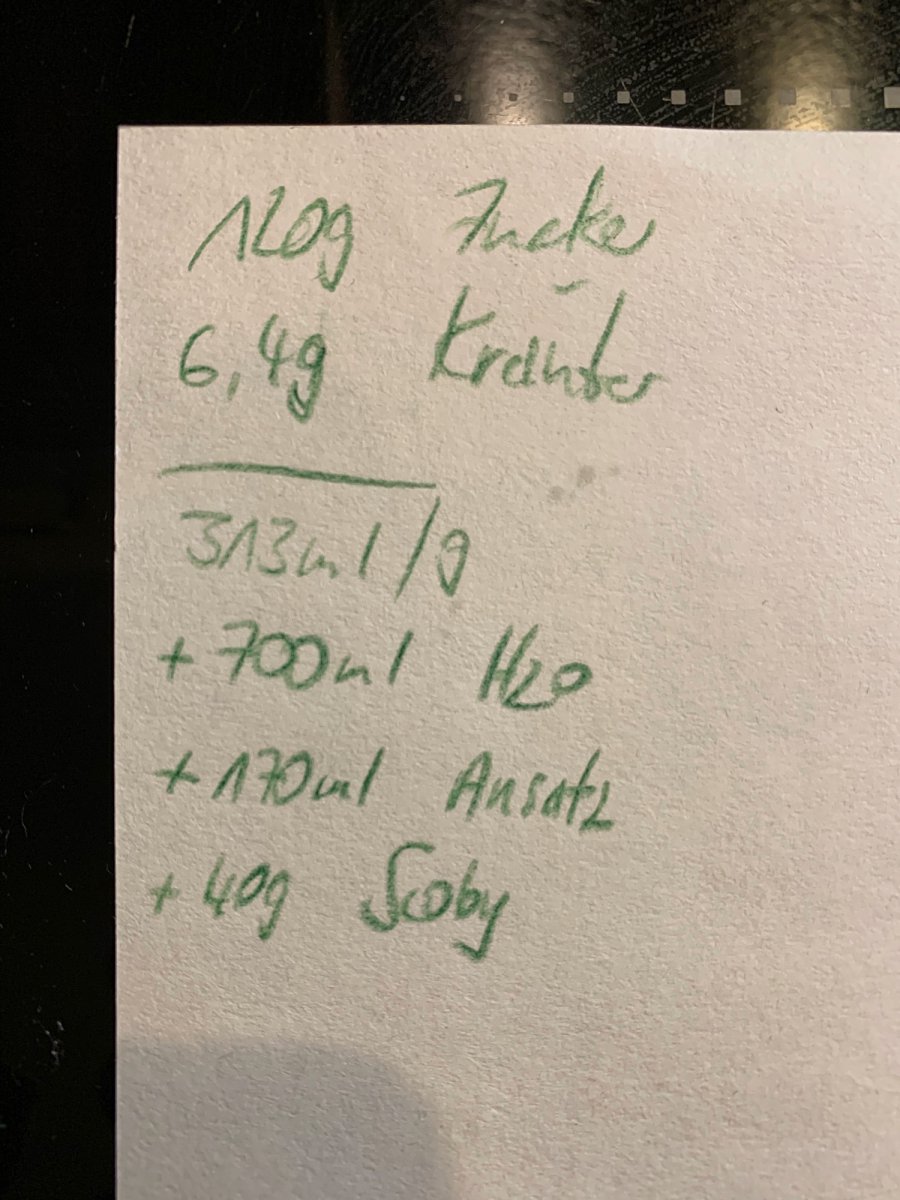 120g Zucker
6,4g Kräuter
313ml/g
+ 700ml H2O
+ 170ml Ansatz
+ 40g Scoby